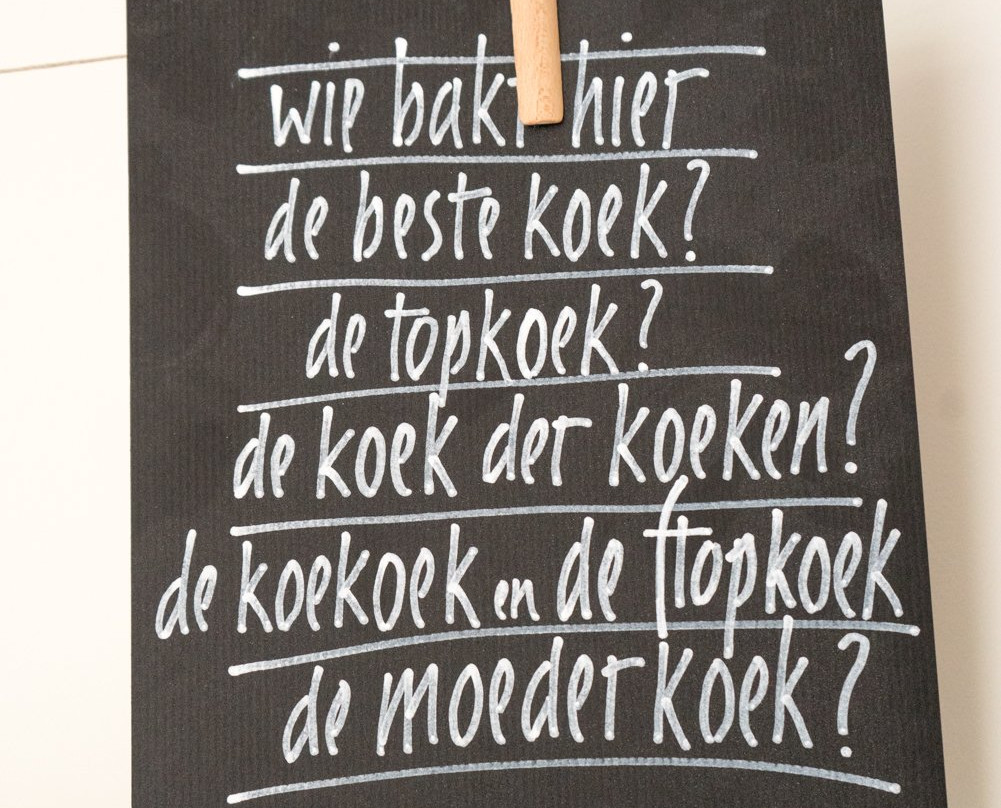 wie bakt hier
de beste koek?
de topkoek?
de koek der koeken?
de koekoek en de ftopkoek
de moederkoek?